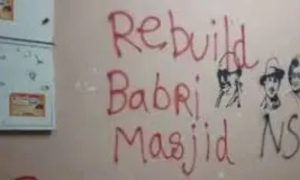 Rebuild
Babri
Masjid NS